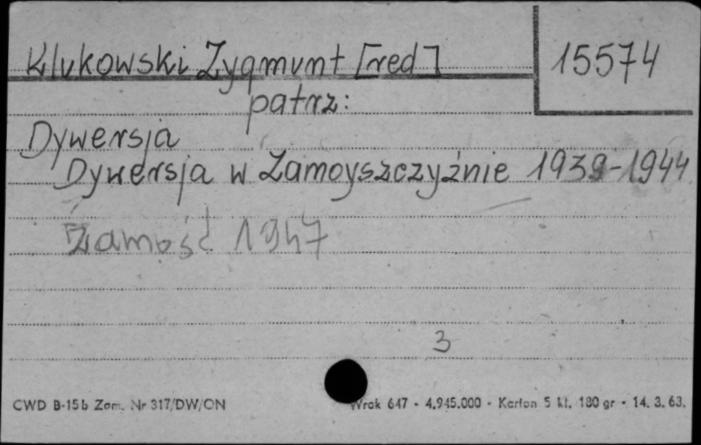 Klukowski Zygmunt [red] 15574
patrz:
Dywersja
Dywersja w Zamoyszczyźnie 1939-1944
Zamość 1947
3
CWD B-15b Zam. Nr 317/DW/ON Wrak 647 - 4.945.000 - Karton 5 kl. 180 gr - 14. 3. 63.